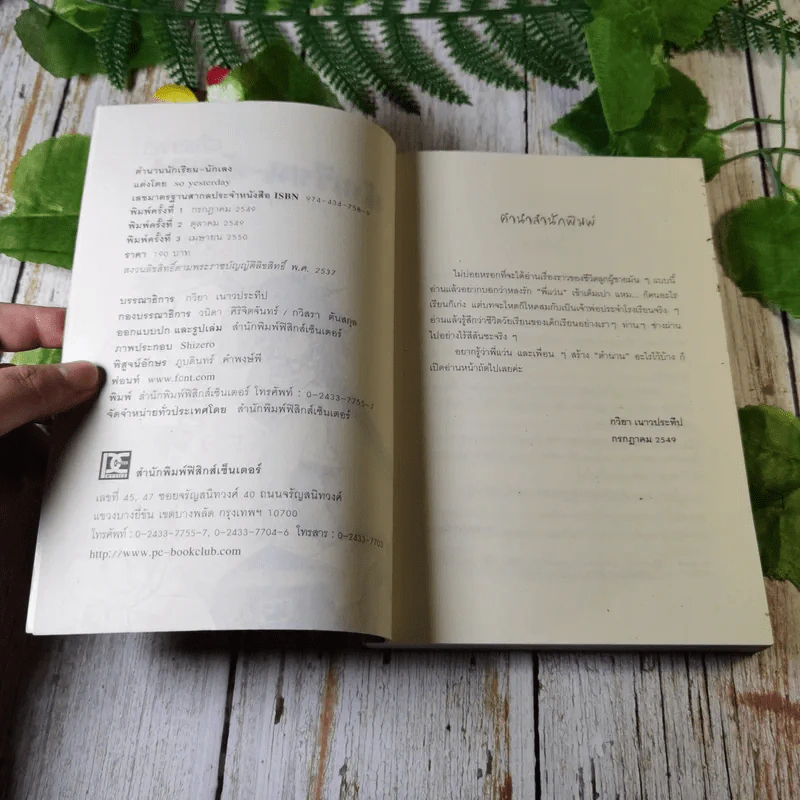 ตำนานนักเรียน-นักเลง
แต่งโดย so yesterday
เลขมาตรฐานสากลประจำหนังสือ ISBN 974-434-758-9
พิมพ์ครั้งที่ 1 กรกฎาคม 2549
พิมพ์ครั้งที่ 2 ตุลาคม 2549
พิมพ์ครั้งที่ 3 เมษายน 2550
ราคา 190 บาท
สงวนลิขสิทธิ์ตามพระราชบัญญัติลิขสิทธิ์ พ.ศ. 2537
บรรณาธิการ กวิยา เนาวประทีป
กองบรรณาธิการ วนิดา ศิริจิตจันทร์ / กวิสรา ตันสกุล
ออกแบบปก และรูปเล่ม สำนักพิมพ์ฟิสิกส์เซ็นเตอร์
ภาพประกอบ Shizero
พิสูจน์อักษร ภูบดินทร์ คำพงษ์พี
ฟอนท์ www.f0nt.com
พิมพ์ สำนักพิมพ์ฟิสิกส์เซ็นเตอร์ โทรศัพท์ : 0-2433-7755-7
จัดจำหน่ายทั่วประเทศโดย สำนักพิมพ์ฟิสิกส์เซ็นเตอร์
สำนักพิมพ์ฟิสิกส์เซ็นเตอร์
เลขที่ 45, 47 ซอยจรัญสนิทวงศ์ 40 ถนนจรัญสนิทวงศ์
แขวงบางยี่ขัน เขตบางพลัด กรุงเทพฯ 10700
โทรศัพท์ : 0-2433-7755-7, 0-2433-7704-6 โทรสาร : 0-2433-7703
http://www.pc-bookclub.com
คำนำสำนักพิมพ์
ไม่บ่อยหรอกที่จะได้อ่านเรื่องราวของชีวิตลูกผู้ชายมัน ๆ แบบนี้
อ่านแล้วอยากบอกว่าหลงรัก "พี่แว่น" เข้าเต็มเปา แหม... ก็คนอะไร
เรียนก็เก่ง แต่บทจะโหดก็โหดสมกับเป็นเจ้าพ่อประจำโรงเรียนจริง ๆ
อ่านแล้วรู้สึกว่าชีวิตวัยเรียนของเด็กเรียนอย่างเราๆ ท่านๆ ช่างผ่าน
ไปอย่างไร้สีสันซะจริง ๆ
อยากรู้ว่าพี่แว่น และเพื่อน ๆ สร้าง "ตำนาน" อะไรไว้บ้าง ก็
เปิดอ่านหน้าถัดไปเลยค่ะ
กวิยา เนาวประทีป
กรกฎาคม 2549